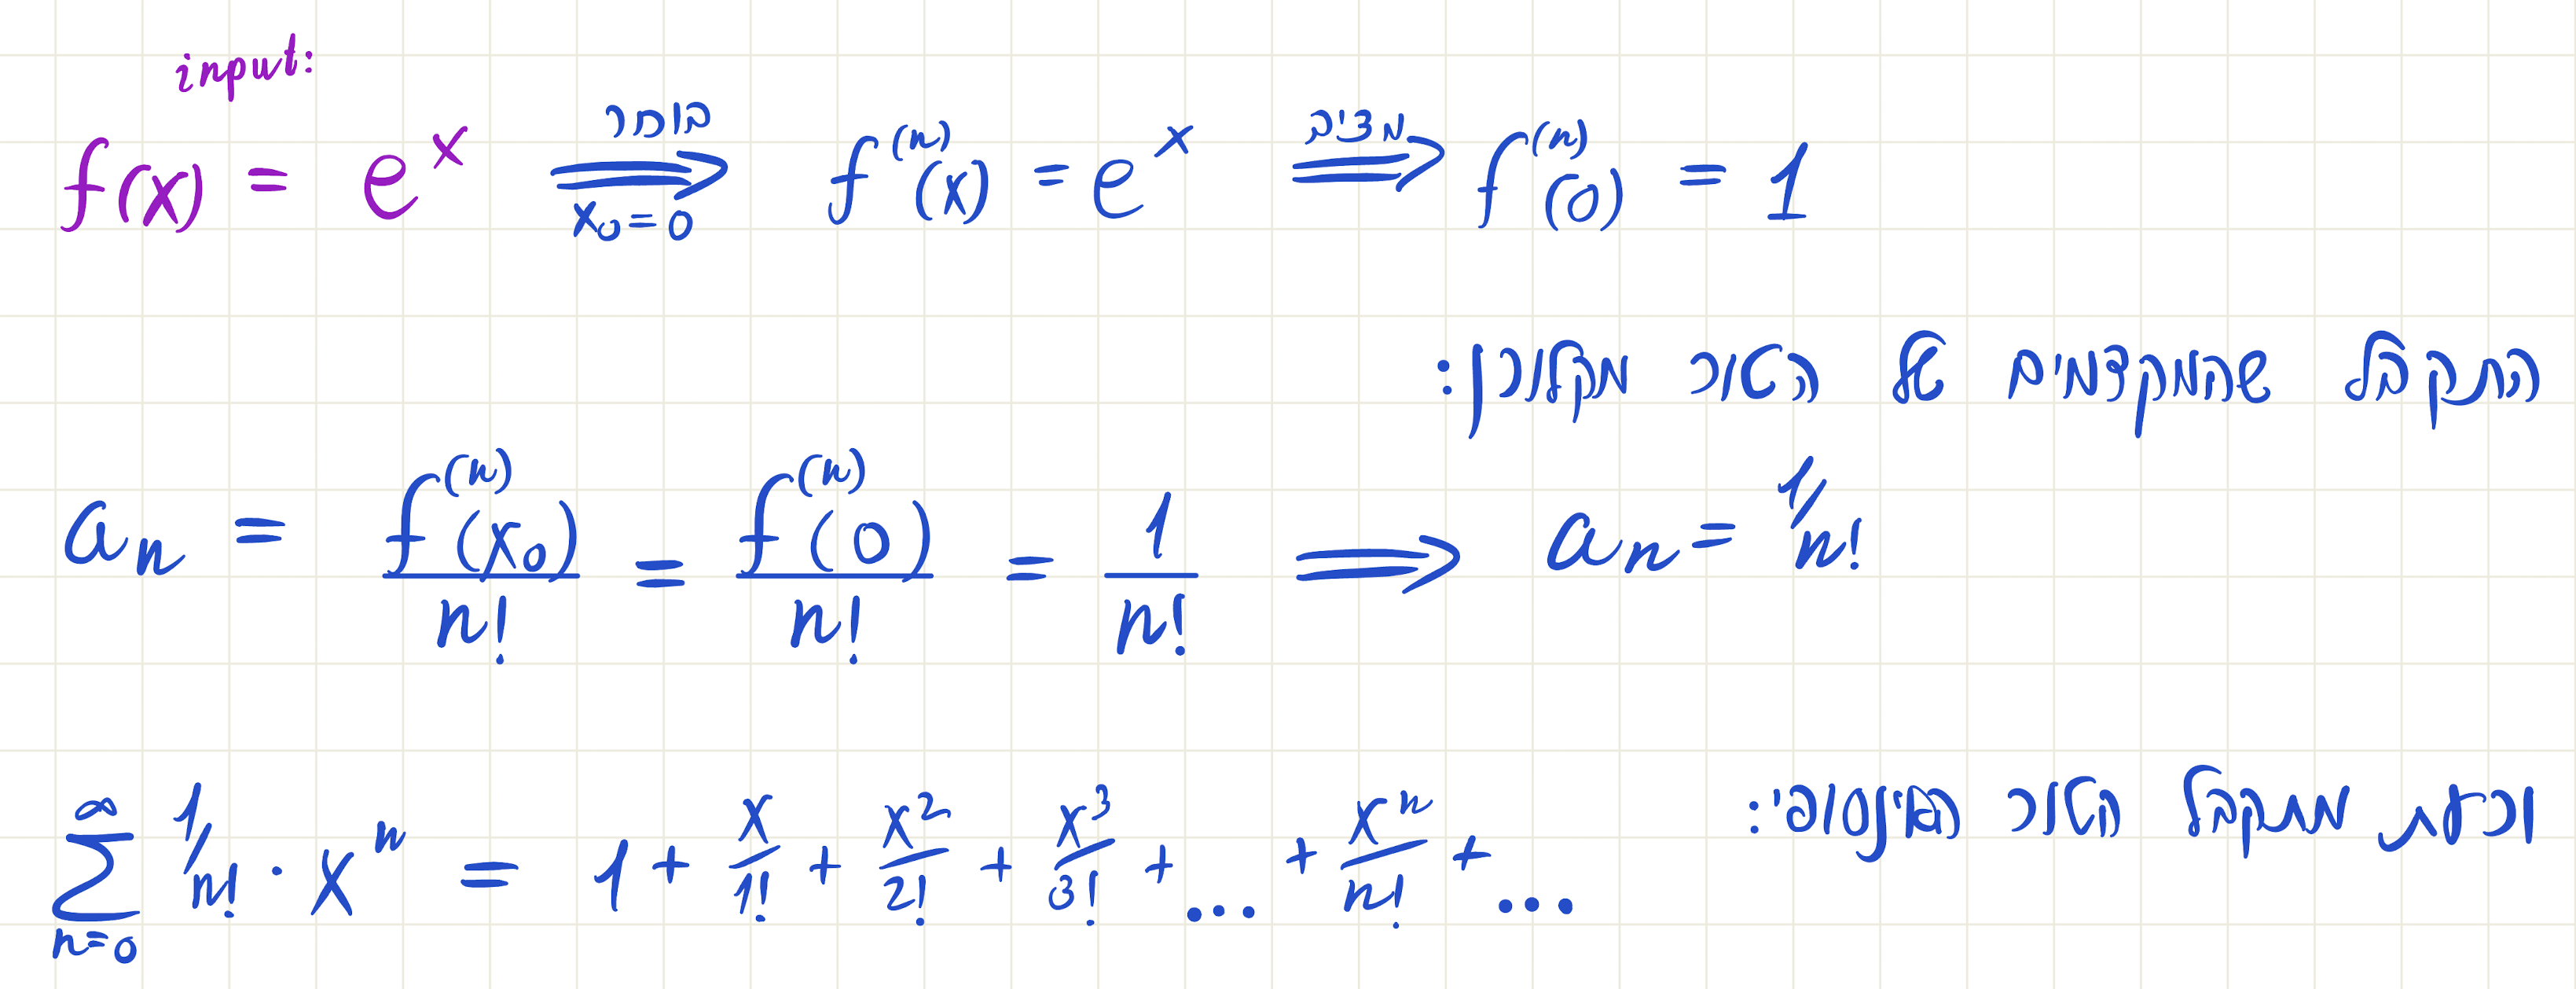 input:
f(x) = e^x ⟹ בוחר x₀=0 f^(n)(x) = e^x ⟹ נציב f^(n)(0) = 1
התקבל שהמקדמים של הטור מקלורן:
a_n = f^(n)(x₀)/n! = f^(n)(0)/n! = 1/n! ⟹ a_n = 1/n!
וכעת מתקבל הטור האינסופי:
∑_{n=0}^{∞} 1/n! · x^n = 1 + x/1! + x²/2! + x³/3! + ... + x^n/n! + ...